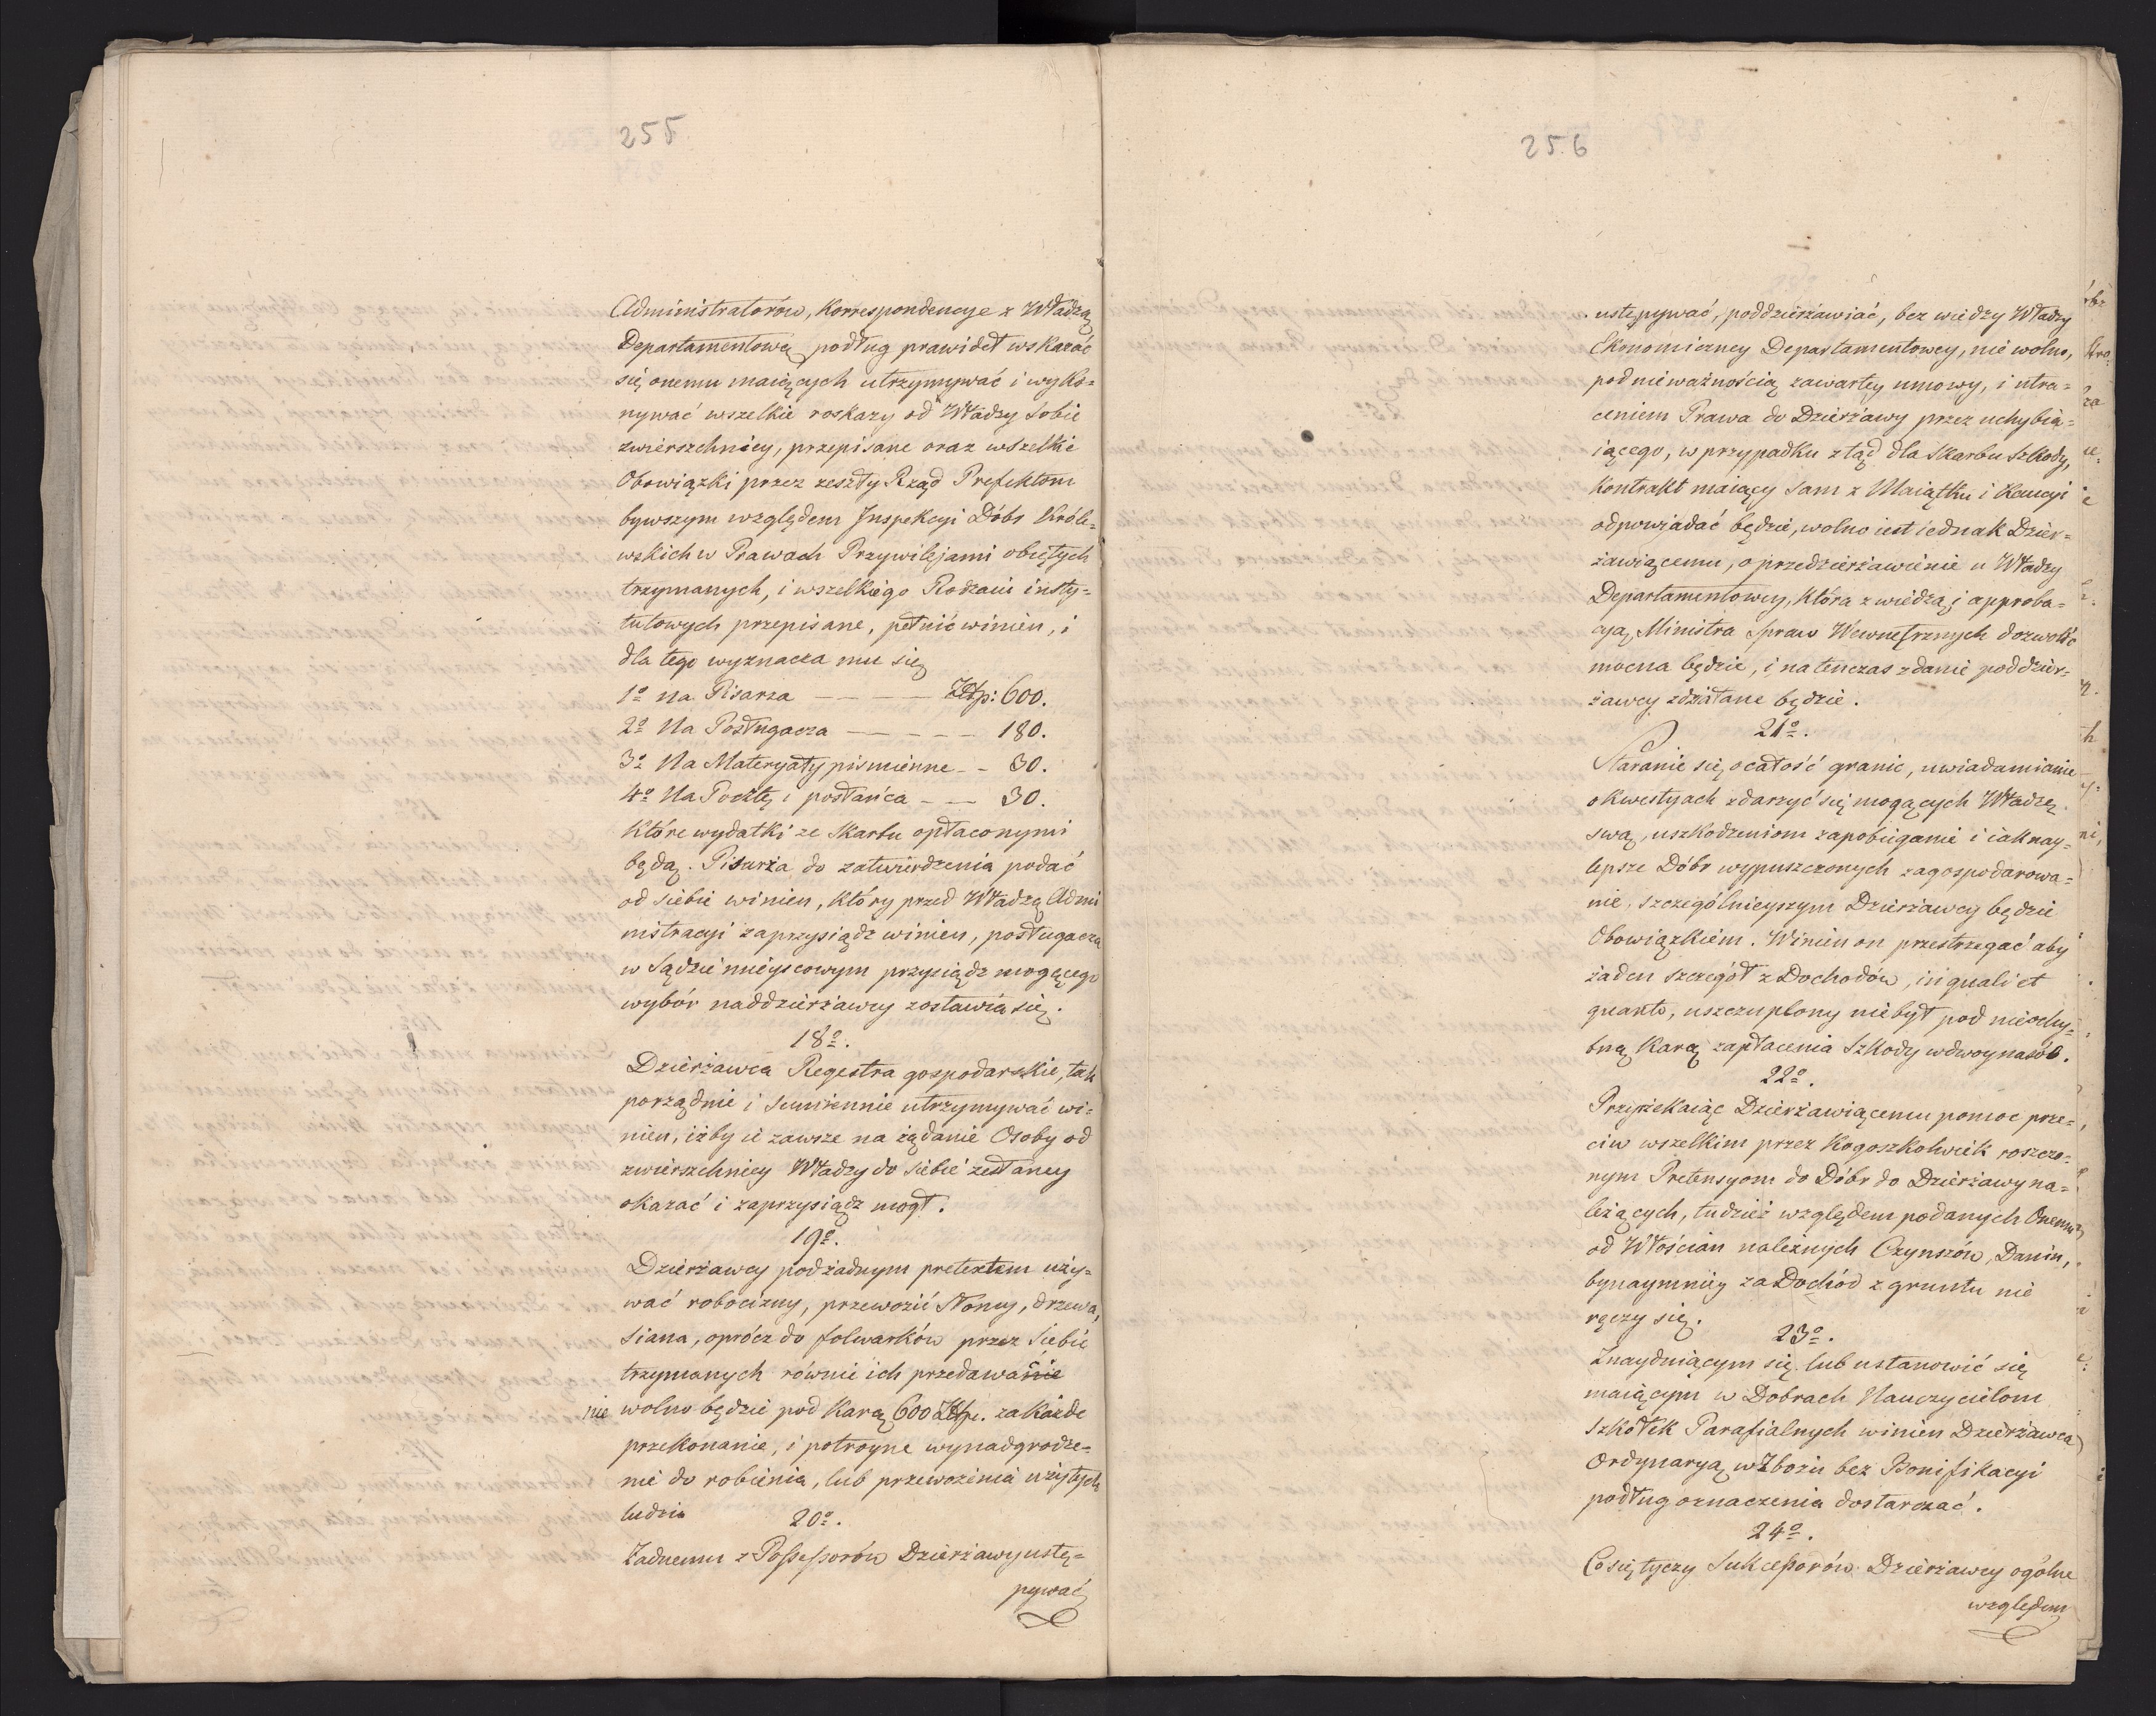 255
Administratorów, Korrespondencye z Władzą
Departamentową podług prawideł wskazać
się onemu maiących utrzymywać i wyko=
nywać wszelkie roskazy od Władzy Sobie
zwierzchniey, przepisane oraz wszelkie
Obowiązki przez zeszły Rząd Prefektom
bywszym względem Inspekcyi Dóbr Króle=
wskich w Prawach Przywilejami obiętych
trzymanych, i wszelkiego Rodzaiu insty=
tutowych przepisane, pełnić winien, i
dla tego wyznacza mu się
1º na Pisarza — — — — Złtp: 600.
2º Na Posługacza — — — — 180.
3º Na Materyały pismienne — — 30.
4º Na Pocztę i posłańca — — 30.
Które wydatki ze Skarbu opłaconymi
będą. Pisarza do zatwierdzenia podać
od siebie winien, który przed Władzą Admi
nistracyi zaprzysiądz winien, posługacza
w Sądzie mieyscowym przysiądz mogącego
wybór naddzierżawcy zostawia się.
18º.
Dzierżawca Regestra gospodarskie, tak
porządnie i sumiennie utrzymywać wi=
nien, iżby ie zawsze na żądanie Osoby od
zwierszchniey Władzy do siebie zesłaney
okazać i zaprzysiądz mogł.
19º.
Dzierżawcy pod żadnym pretextem uży=
wać robocizny, przewozić Słomy, drzewa,
Siana, oprócz do folwarków przez Siebie
trzymanych równie ich przedawanie
nie wolno będzie pod Karą 600 Złtp. za każde
przekonanie, i potroyne wynadgrodze=
nie do robienia, lub przewożenia użytych
ludzi
20º.
Żadnemu z Possessorów Dzierżawy ustę=
pywać
256
ustępywać, poddzierżawiać, bez wiedzy Władzy
Ekonomiczney Departamentowey, nie wolno,
pod nieważnością zawartey umowy, i utra=
ceniem Prawa do Dzierżawy przez uchybia=
iącego, w przypadku ztąd dla Skarbu Szkody,
Kontrakt maiący sam z Maiątku i Kaucyi
odpowiadać będzie, wolno iest iednak Dzier=
żawiącemu, o przedzierżawienie u Władzy
Departamentowey, Która z wiedzą i approba=
cyą Ministra Spraw Wewnętrznych dozwolić
mocna będzie, i na tenczas zdanie poddzier=
żawcy zdziałane będzie.
21º.
Staranie się o całość granic, uwiadamianie
o kwestyach zdarzyć się mogących Władzę
swą, uszkodzeniom zapobieganie i iaknay=
lepsze Dóbr wypuszczonych zagospodarowa=
nie, szczególnieyszym Dzierżawcy będzie
Obowiązkiem. Winien on przestrzegać aby
żaden szczegół z Dochodów, in quali et
quanto, uszczuplony nie był pod nieochy=
bną Karą zapłacenia Szkody w dwoynasób.
22º.
Przyrzekaiąc Dzierżawiącemu pomoc prze=
ciw wszelkim przez Kogoszkolwiek roszczo=
nym Pretensyom do Dóbr do Dzierżawy na=
leżących, tudzież względem podanych Onemu
od Włościan należnych Czynszów, Danin,
bynaymniey za Dochód z gruntu nie
ręczy się.
23º.
Znayduiącym się lub ustanowić się
maiącym w Dobrach Nauczycielom
Szkółek Parafialnych winien Dzierżawca
Ordynaryą w Zbożu bez Bonifikacyi
podług oznaczenia dostarczać.
24º.
Co się tyczy Sukcessorów Dzierżawcy ogólne
względem